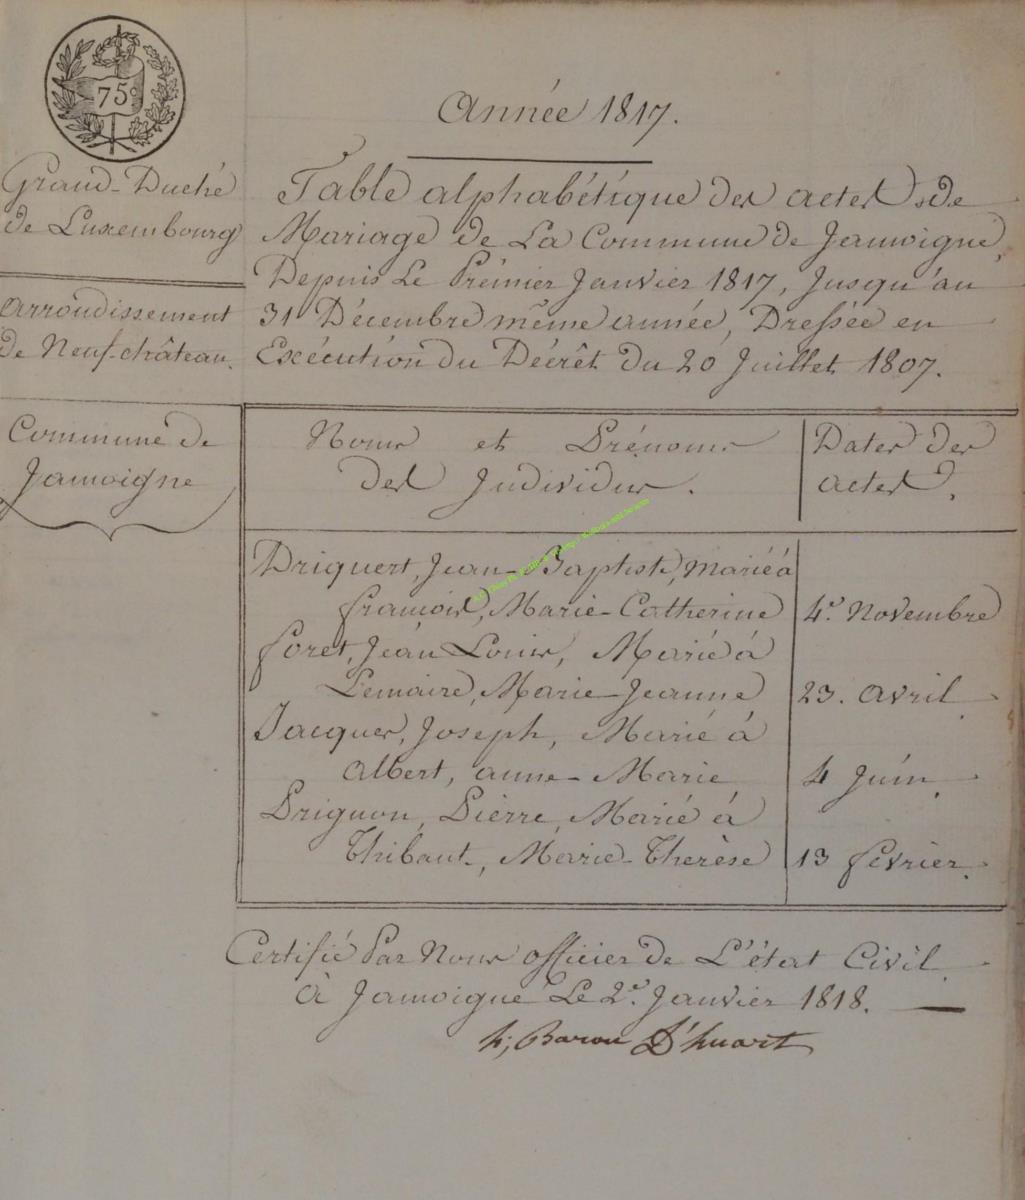 75c
Année 1817.
Grand-Duché
de Luxembourg
Arrondissement
de Neuf-château.
Commune de
Jamoigne
Table alphabétique des actes de
Mariage de La Commune de Jamoigne,
Depuis Le Prémier Janvier 1817, Jusqu'áu
31 Décembre même année, Dressée en
Exécution du Décrêt du 20 Juillet 1807.
Noms et Prénoms
des Individus.
Dates des
actes.
Driquert, Jean-Baptiste, Marié à
françois, Marie-Catherine
4e. Novembre
foret, Jean Louis, Marié à
Lemaire, Marie-Jeanne
23. avril.
Jacques, Joseph, Marié à
Albert, anne-Marie
4 Juin.
Prignon, Pierre, Marié à
Thibaut, Marie-Therèse
13 fevrier.
Certifié Par Nous officier de L'état Civil
à Jamoigne Le 2e. Janvier 1818.
Baron D'huart